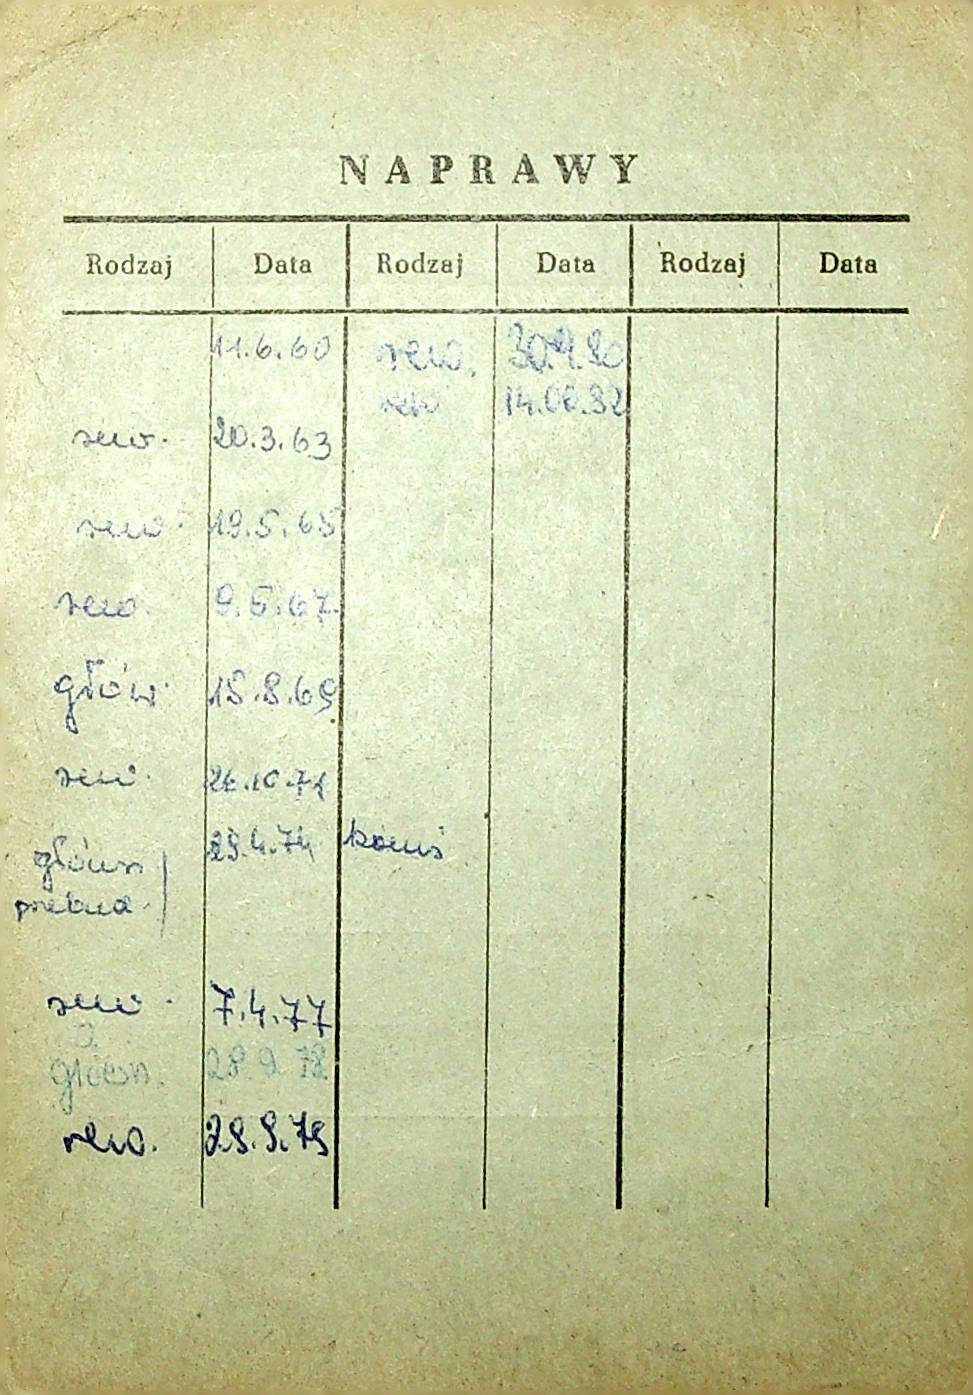 NAPRAWY
Rodzaj Data Rodzaj Data Rodzaj Data
11.6.60 rew. 30.9.80
rew 14.06.82
rew. 20.3.63
rew. 19.5.65
rew. 9.5.67.
głów. 15.8.69
rew. 10.71
główn 4.74
rew. 7.4.77
główn. 28.9.78
rew. 28.9.79